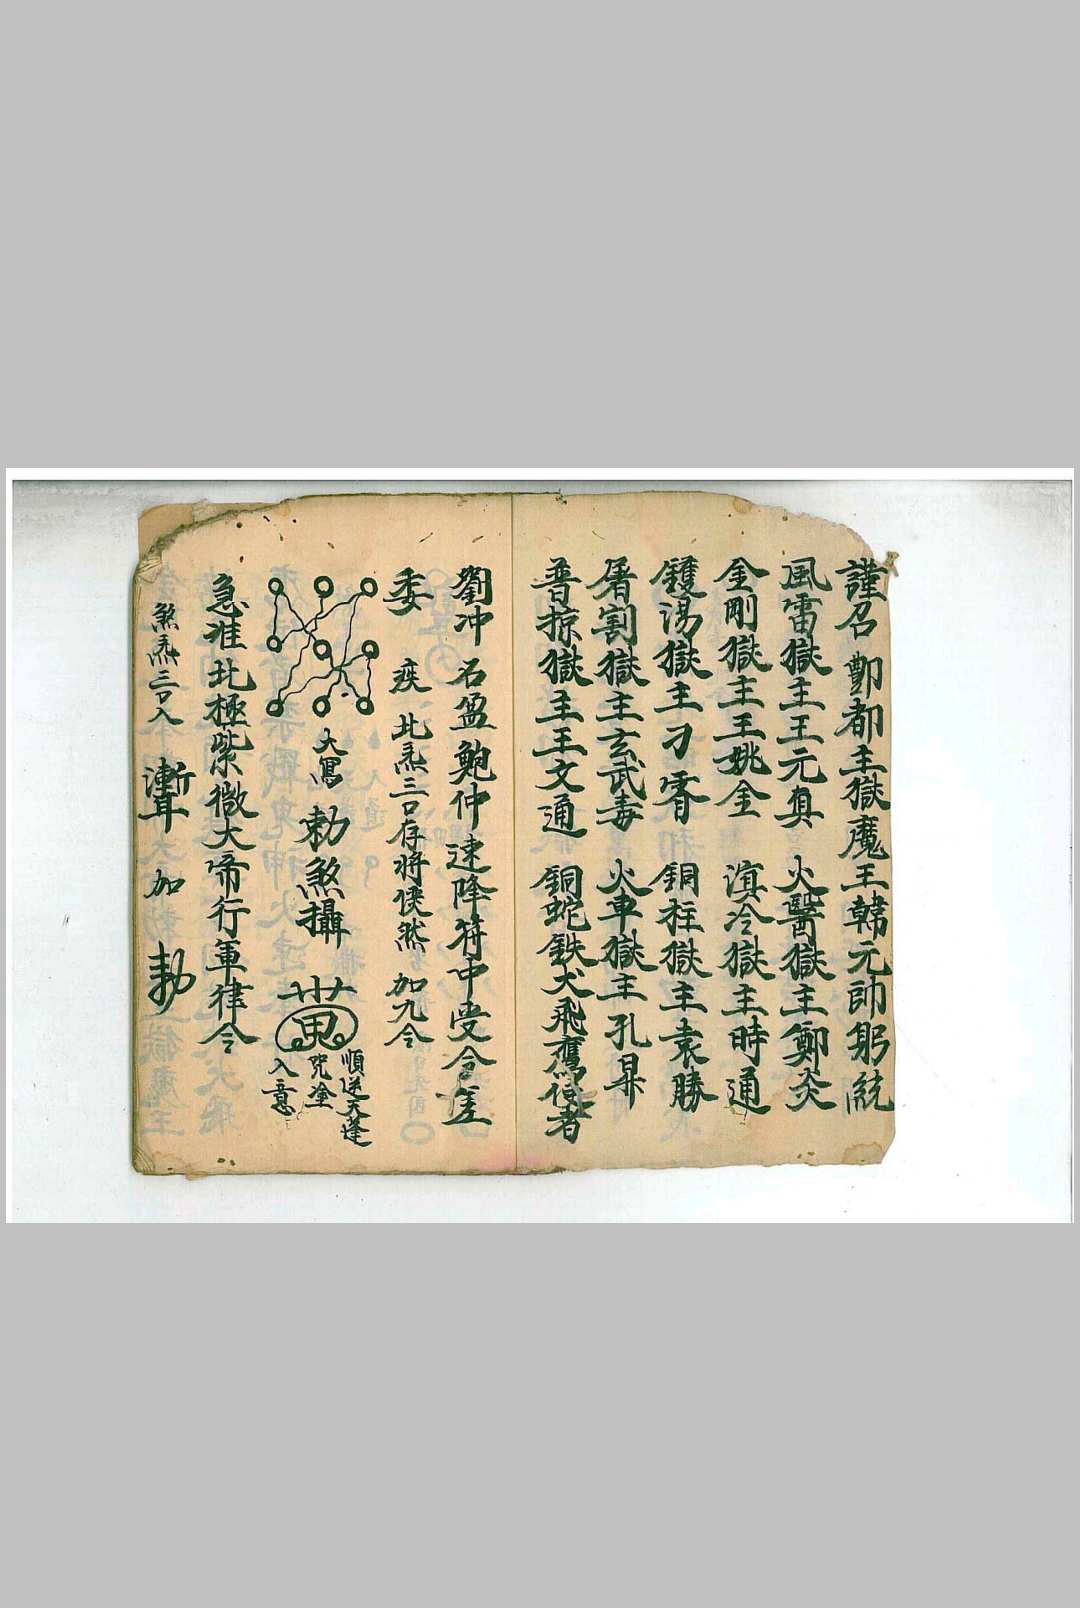 謹召 酆都主獄魔王韓元帥躬統
風雷獄主王元真 火醫獄主鄭炎
金剛獄主王姚金 溟冷獄主時通
鑊湯獄主刁霄 銅柱獄主袁勝
屠割獄主玄武毒 火車獄主孔昇
普掠獄主王文通 銅蛇鉄犬飛鷹使者
劉冲 名盈鮑仲速降符中受令差
委 疾 北炁三口存將儀然 加九令
大寫 勅煞攝
順逆天蓬
咒塗
入意
急准北極紫微大帝行軍律令
煞炁三口入 加 勅